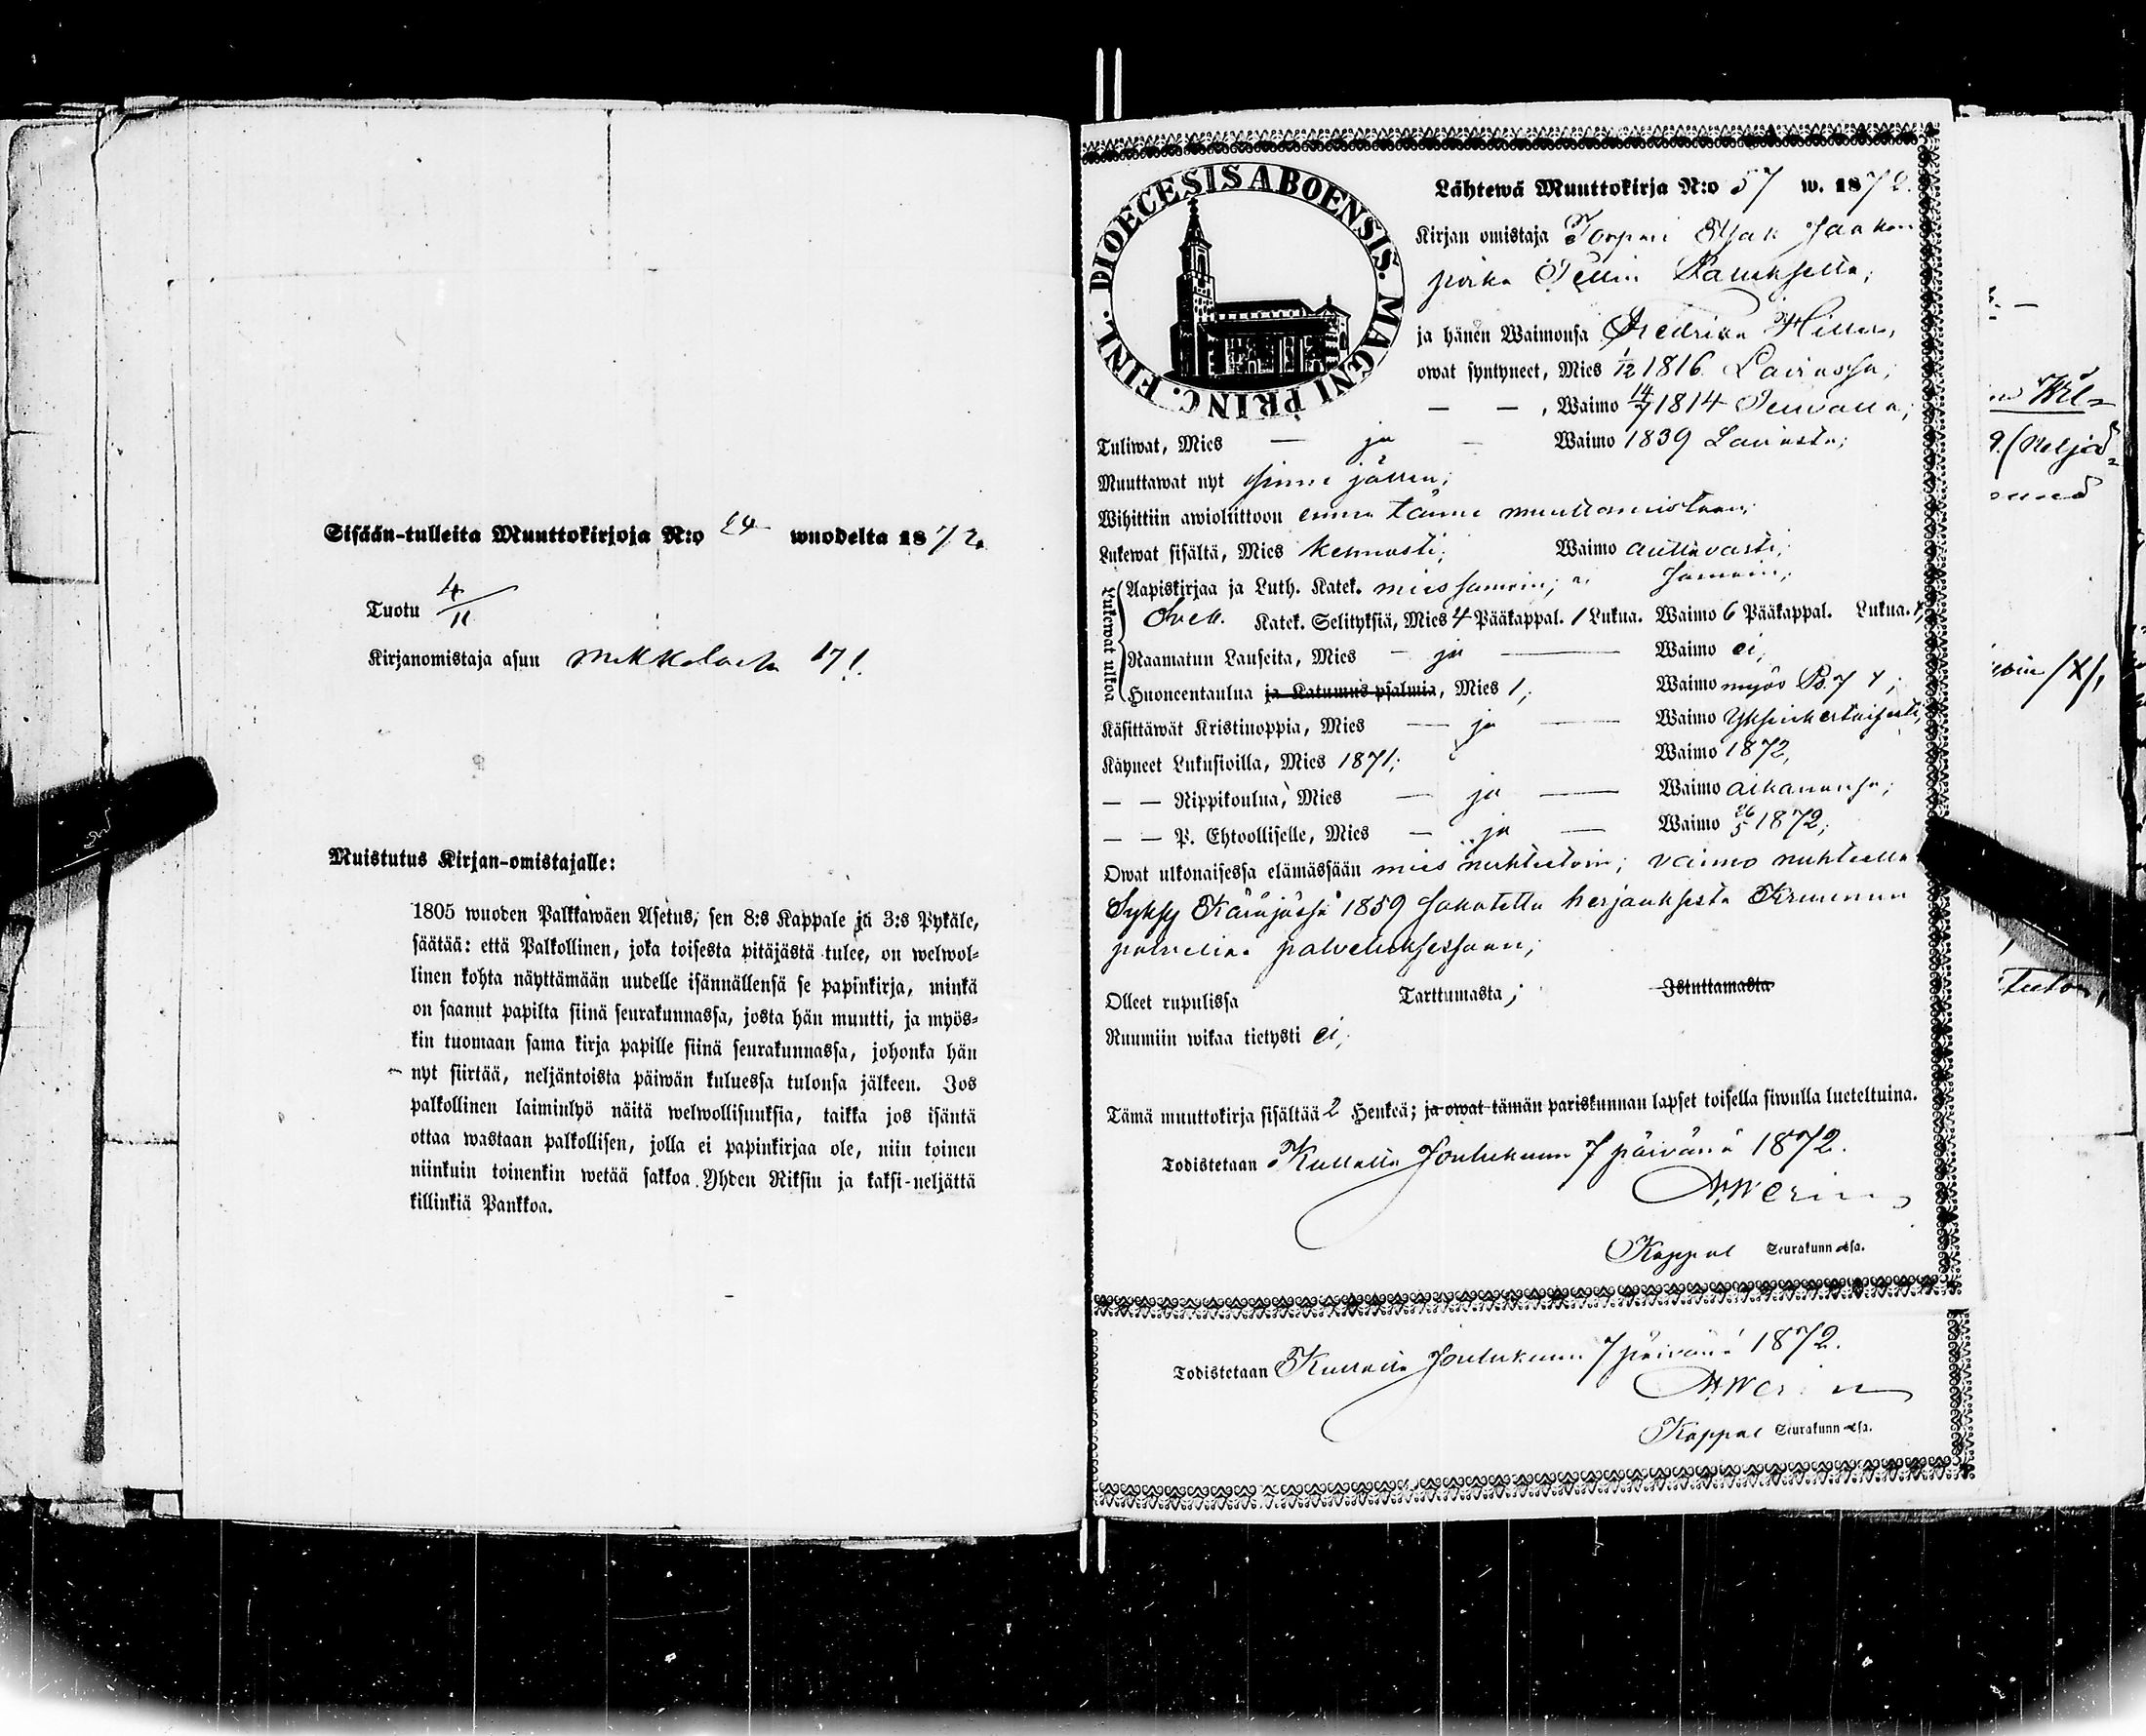 Sisään-tulleita Muuttokirjoja N:o 24 wuodelta 1872.
Tuotu 4/11
Kirjanomistaja asuu 17!
Muistutus Kirjan-omistajalle:
1805 wuoden Palkkawäen Asetus, sen 8:s Kappale ja 3:s Pykäle,
säätää: että Palkollinen, joka toisesta pitäjästä tulee, on welwol=
linen kohta näyttämään uudelle isännällensä se papinkirja, minkä
on saanut papilta siinä seurakunnassa, josta hän muutti, ja myös=
kin tuomaan sama kirja papille siinä seurakunnassa, johonka hän
nyt siirtää, neljäntoista päiwän kuluessa tulonsa jälkeen. Jos
palkollinen laiminlyö näitä welwollisuuksia, taikka jos isäntä
ottaa wastaan palkollisen, jolla ei papinkirjaa ole, niin toinen
niinkuin toinenkin wetää sakkoa Yhden Riksin ja kaksi-neljättä
killinkiä Pankkoa.
DIOECESIS ABOENSIS. MAGNI PRINC. FINL.
Lähtewä Muuttokirja N:o 57 w. 1872.
Kirjan omistaja Torpari Isak Jaakon
poika
ja hänen Waimonsa Fredrika
owat syntyneet, Mies 1/12 1816 Laviassa;
— — , Waimo 14/7 1814
Tuliwat, Mies — ja — Waimo 1839 Laviasta;
Muuttawat nyt sinne jällen;
Wihittiin awioliittoon ennen tänne muuttamistaan;
Lukewat sisältä, Mies kehnosti; Waimo auttavasti;
Lukewat ulkoa
Aapiskirjaa ja Luth. Katek. mies samoin; samoin;
Katek. Selityksiä, Mies 4 Pääkappal. 1 Lukua. Waimo 6 Pääkappal. Lukua.
Raamatun Lauseita, Mies — ja — Waimo ei,
Huoneentaulua ja Katumus psalmia, Mies 1; Waimo myös Ps.
Käsittäwät Kristinoppia, Mies — ja — Waimo Yksinkertaisesti,
Käyneet Lukusioilla, Mies 1871; Waimo 1872,
— — Rippikoulua, Mies — ja — Waimo aikananssa;
— — P. Ehtoolliselle, Mies — ja — Waimo 26/5 1872;
Owat ulkonaisessa elämässään mies nuhteetoin; vaimo nuhteella
Syksy Käräjässä 1859 sakotettu herjauksesta Kruunun
palvelian palveluksessaan;
Olleet rupulissa Tarttumasta; Istuttamasta
Ruumiin wikaa tietysti ei;
Tämä muuttokirja sisältää 2 Henkeä; ja owat tämän pariskunnan lapset toisella siwulla lueteltuina.
Todistetaan Kullalla Joulukuun 7 päivänä 1872.
Kappal Seurakunnassa.
Todistetaan Kullalla Joulukuun 7 päivänä 1872.
Kappal Seurakunnassa.